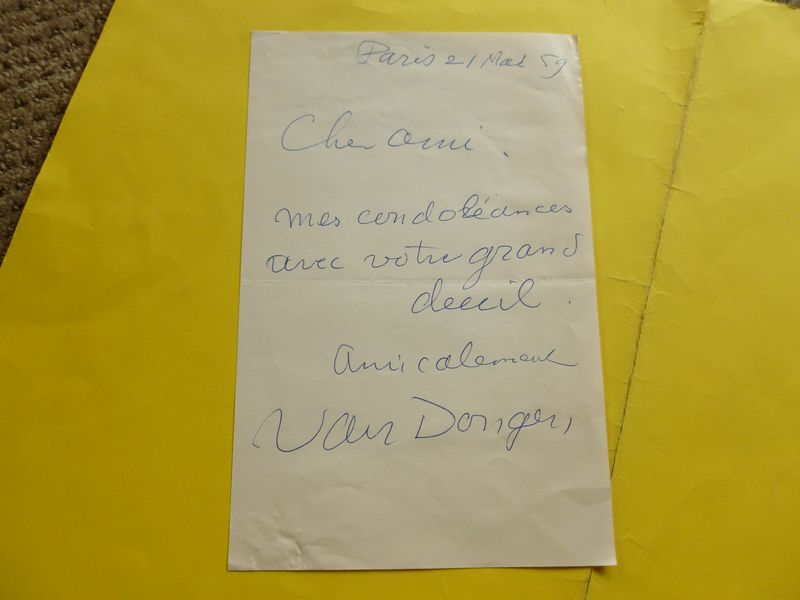 Paris 21 Mai 59
Cher ami.
mes condoléances
avec votre grand
deuil.
Amicalement
Van Dongen